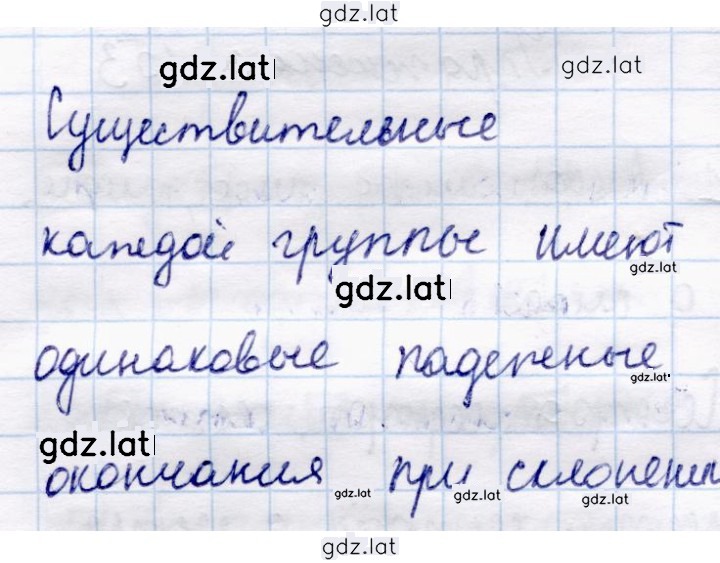 gdz.lat
gdz.lat gdz.lat
Существительные
каждой группы имеют
gdz.lat
gdz.lat
одинаковые падежные
gdz.lat
gdz.lat
окончания при склонени
gdz.lat gdz.lat gdz.lat
gdz.lat